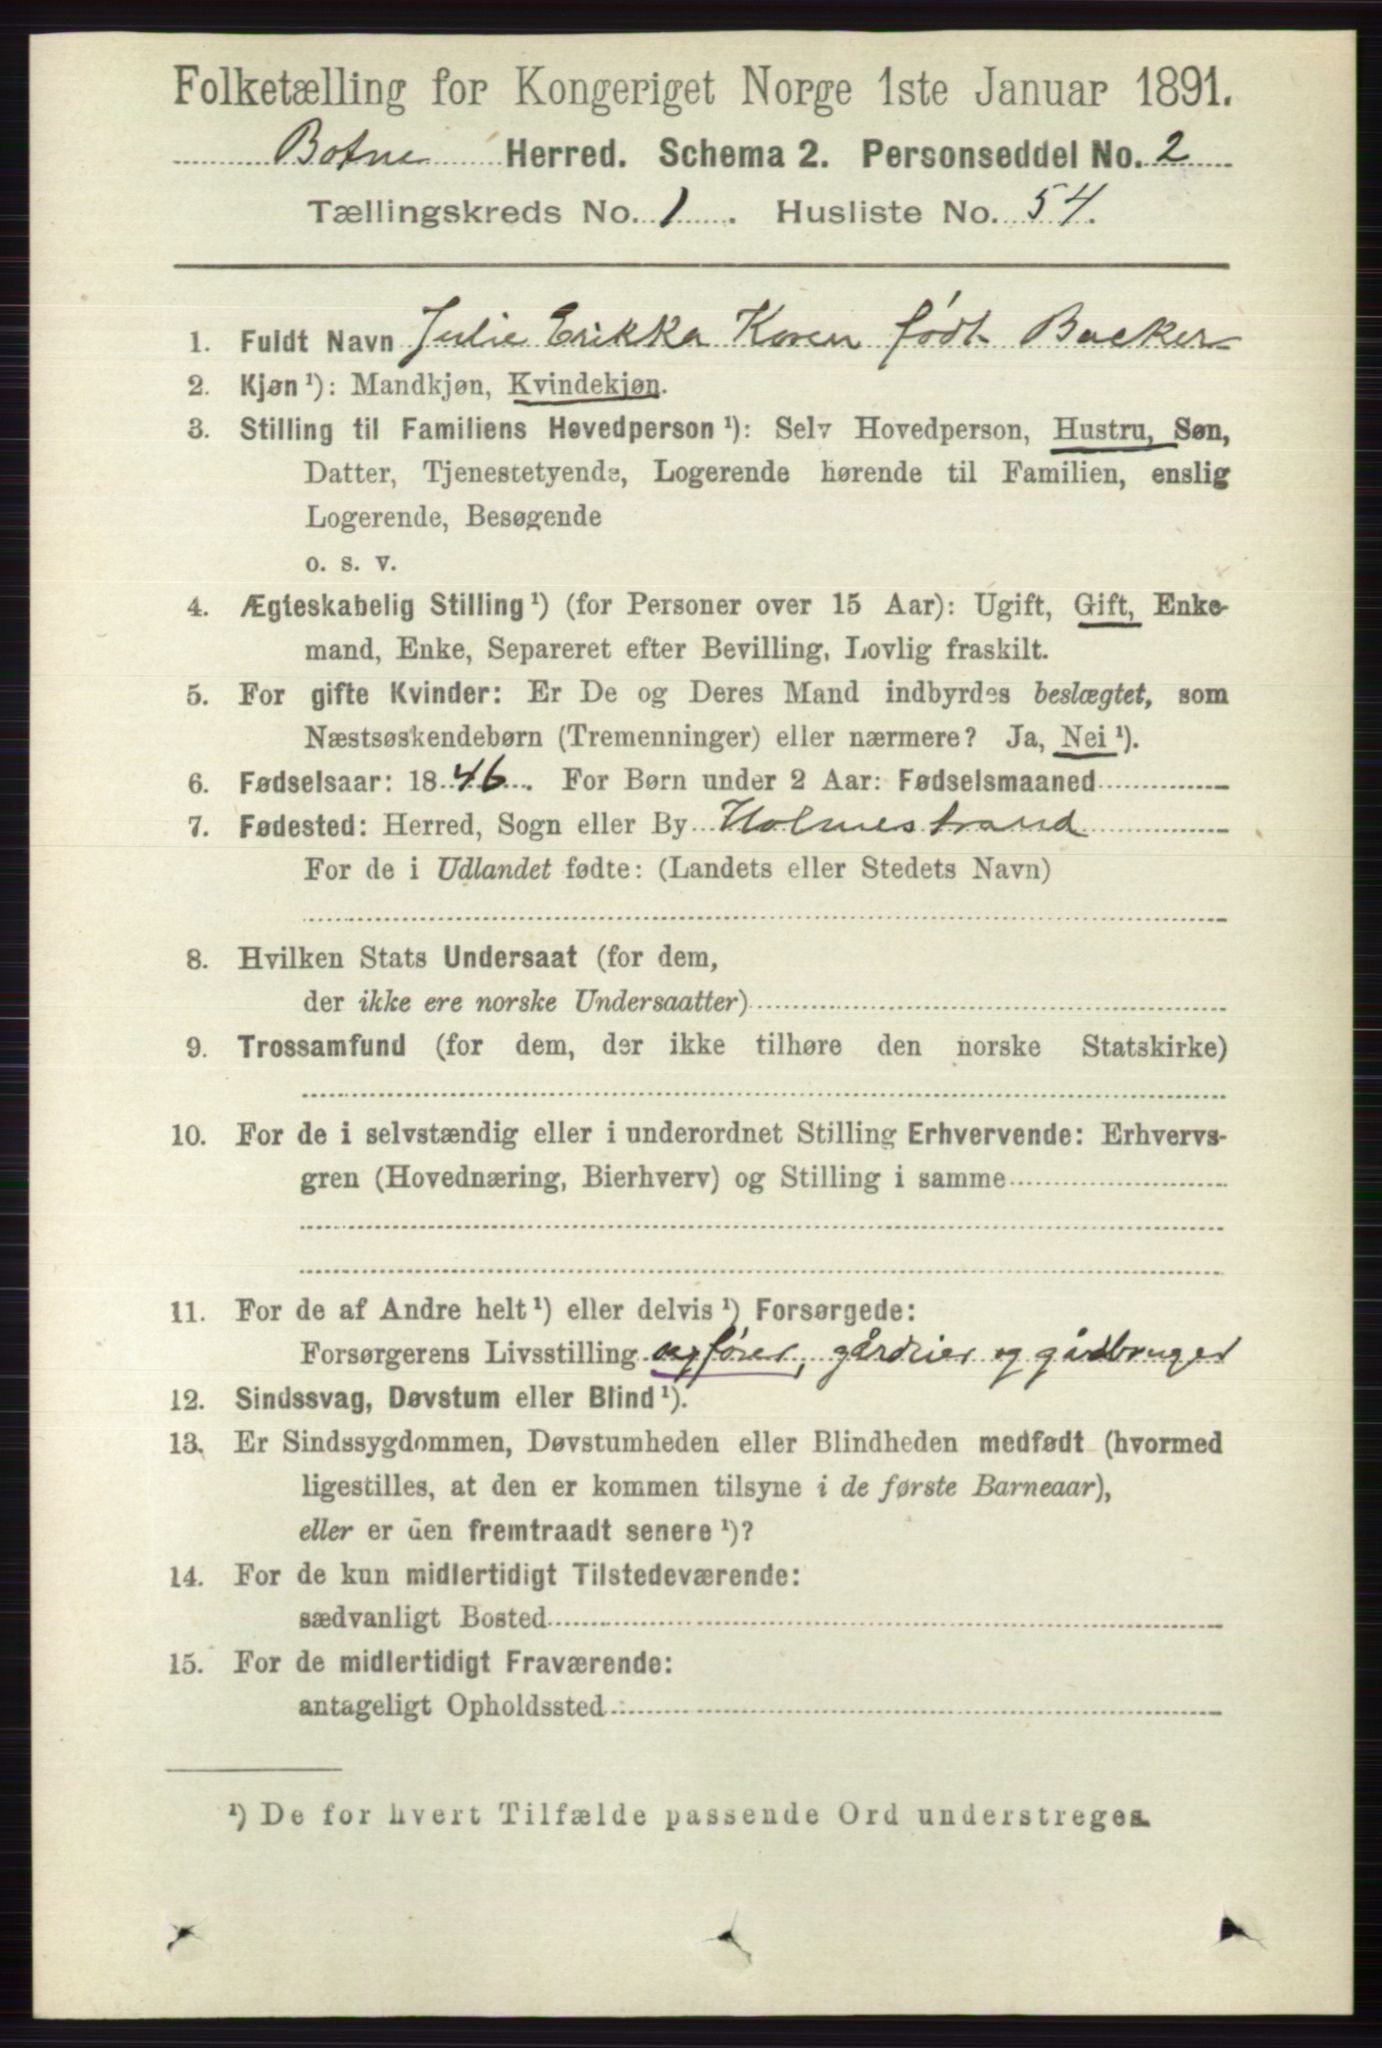 Folketælling for Kongeriget Norge 1ste Januar 1891.
Botne Herred. Schema 2. Personseddel No. 2
Tællingskreds No. 1. Husliste No. 54.
1. Fuldt Navn Julie Erikka Koren født Backer
2. Kjøn ¹): Mandkjøn, Kvindekjøn.
3. Stilling til Familiens Hovedperson ¹): Selv Hovedperson, Hustru, Søn,
Datter, Tjenestetyende, Logerende hørende til Familien, enslig
Logerende, Besøgende
o. s. v.
4. Ægteskabelig Stilling ¹) (for Personer over 15 Aar): Ugift, Gift, Enke-
mand, Enke, Separeret efter Bevilling, Lovlig fraskilt.
5. For gifte Kvinder: Er De og Deres Mand indbyrdes beslægtet, som
Næstsøskendebørn (Tremenninger) eller nærmere? Ja, Nei ¹).
6. Fødselsaar: 1846. For Børn under 2 Aar: Fødselsmaaned
7. Fødested: Herred, Sogn eller By Holmestrand
For de i Udlandet fødte: (Landets eller Stedets Navn)
8. Hvilken Stats Undersaat (for dem,
der ikke ere norske Undersaatter)
9. Trossamfund (for dem, der ikke tilhøre den norske Statskirke)
10. For de i selvstændig eller i underordnet Stilling Erhvervende: Erhvervs-
gren (Hovednæring, Bierhverv) og Stilling i samme
11. For de af Andre helt ¹) eller delvis ¹) Forsørgede:
Forsørgerens Livsstilling gårdeier og gårdbruger
12. Sindssvag, Døvstum eller Blind ¹).
13. Er Sindssygdommen, Døvstumheden eller Blindheden medfødt (hvormed
ligestilles, at den er kommen tilsyne i de første Barneaar),
eller er den fremtraadt senere ¹)?
14. For de kun midlertidigt Tilstedeværende:
sædvanligt Bosted
15. For de midlertidigt Fraværende:
antageligt Opholdssted
¹) De for hvert Tilfælde passende Ord understreges.